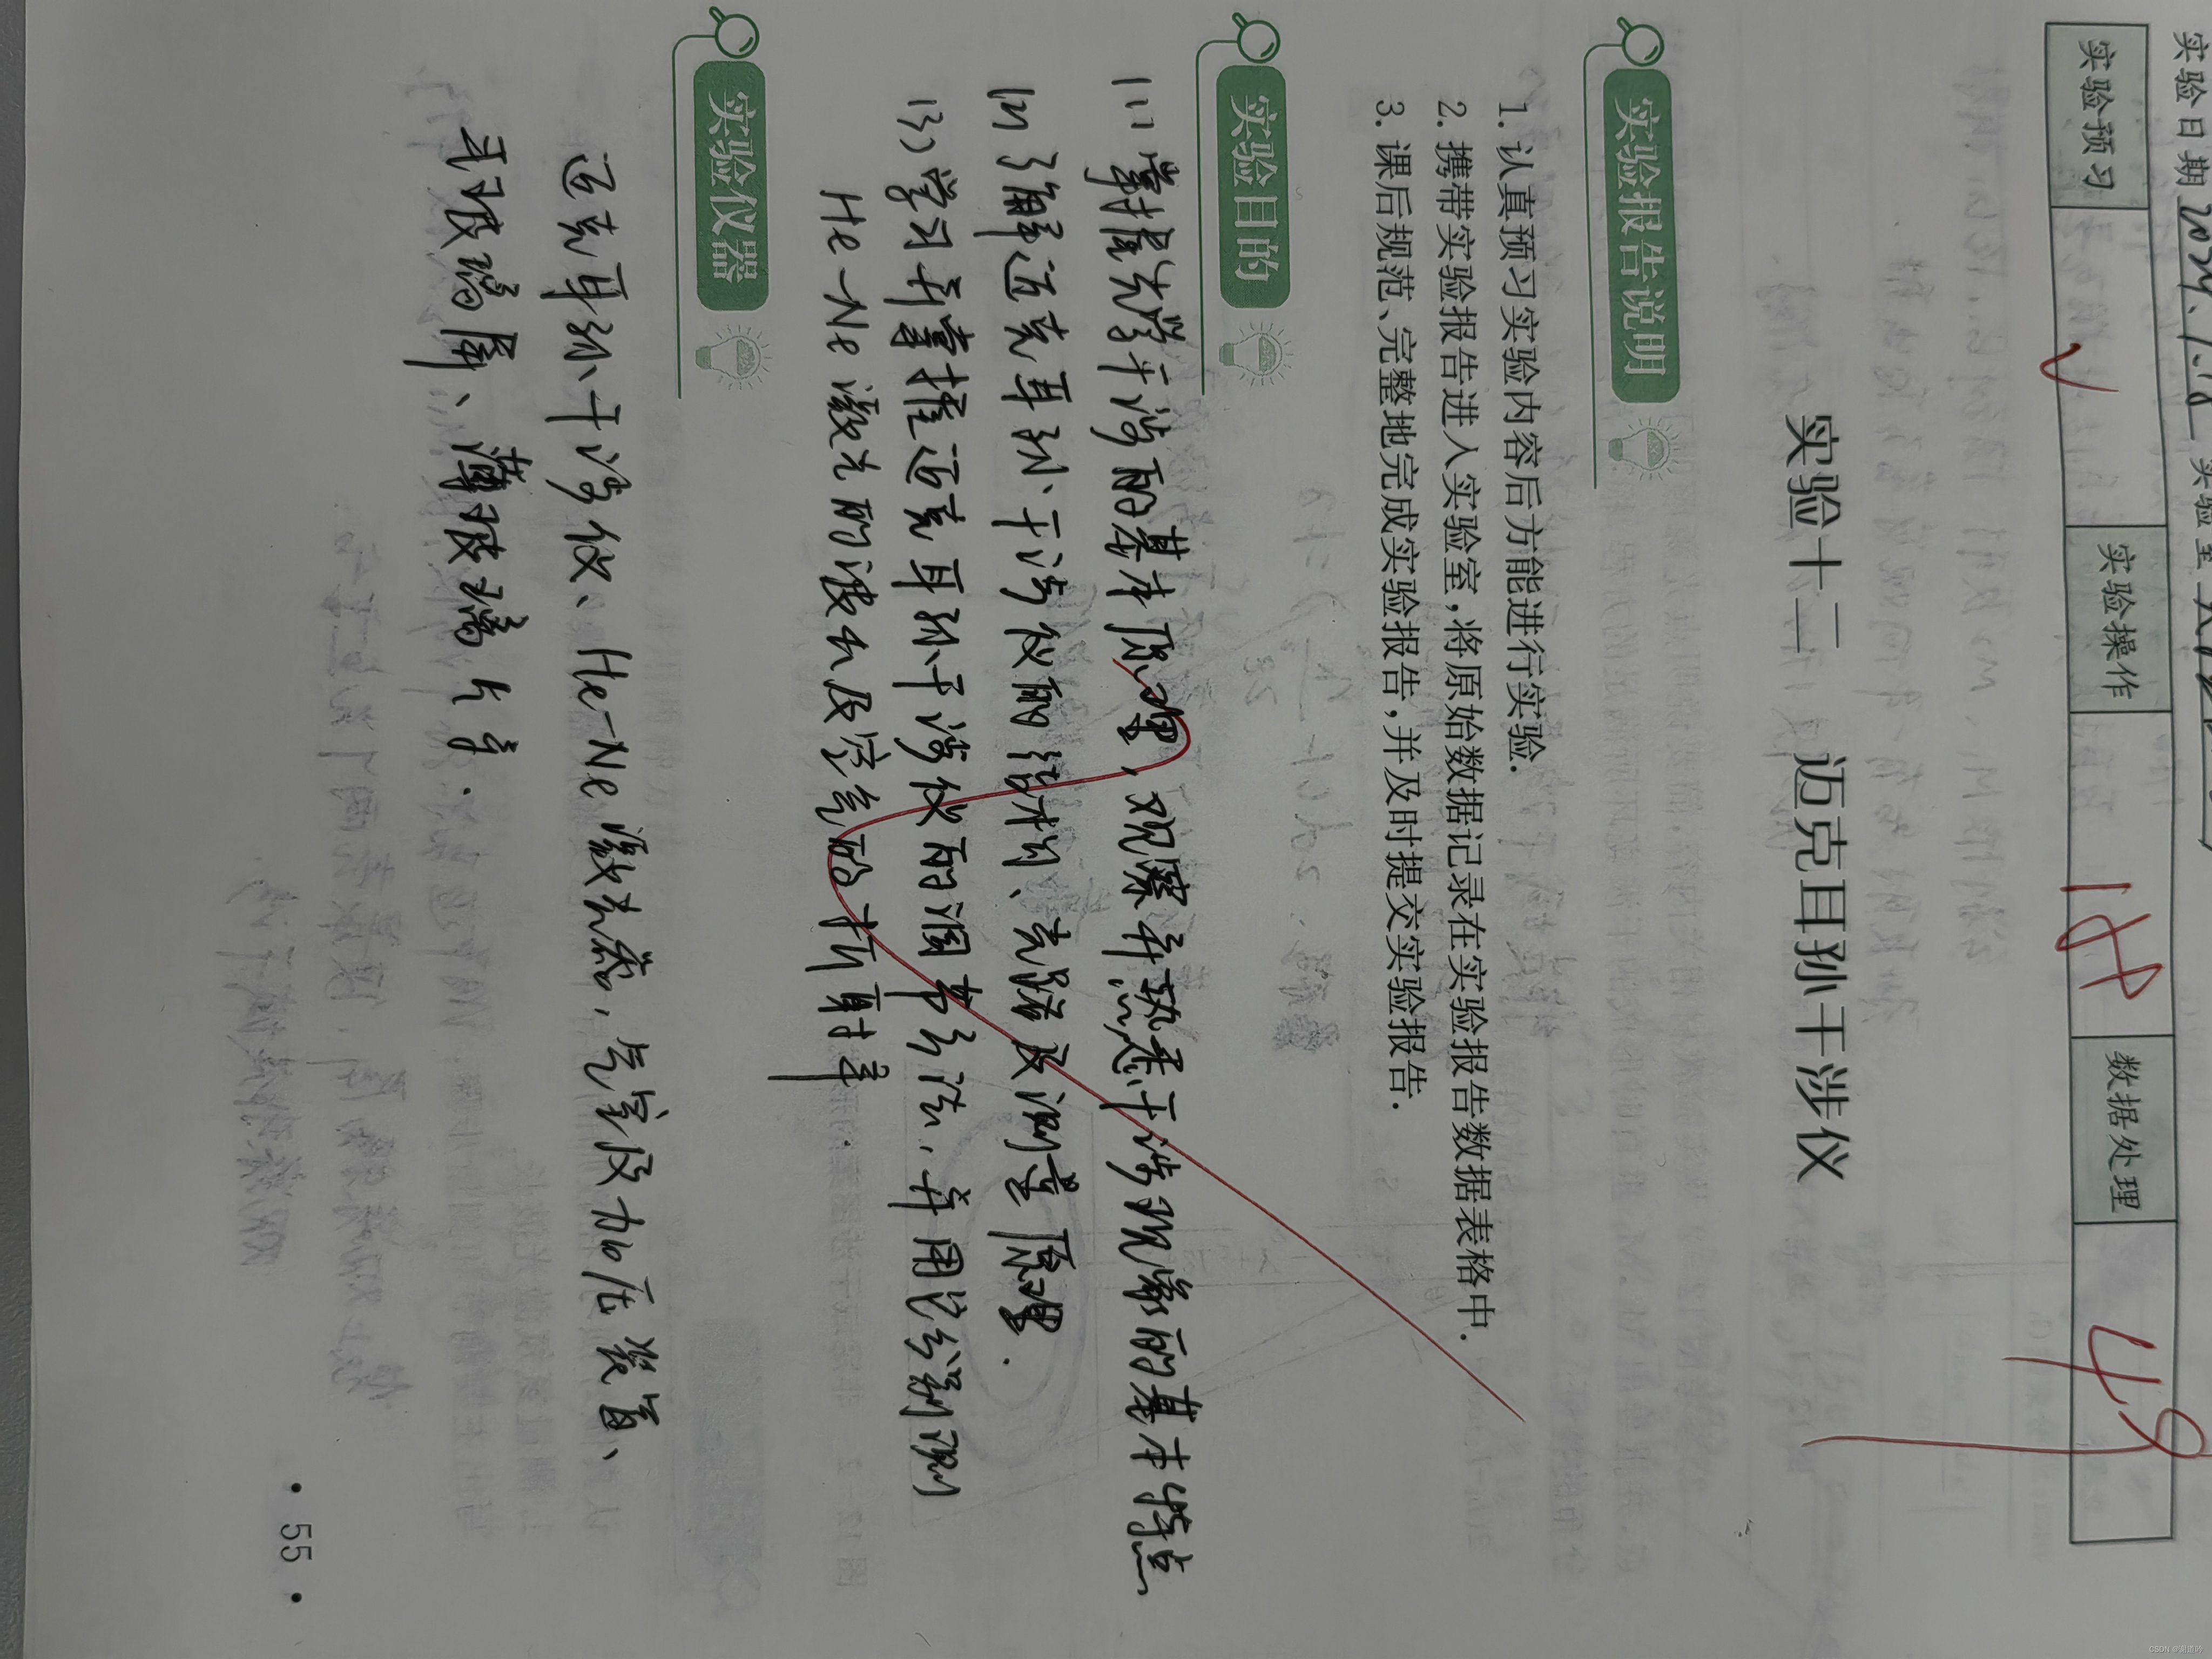 实验日期 2024.
实验预习 实验操作 数据处理
实验十二 迈克耳孙干涉仪
实验报告说明
1. 认真预习实验内容后方能进行实验.
2. 携带实验报告进入实验室,将原始数据记录在实验报告数据表格中.
3. 课后规范、完整地完成实验报告,并及时提交实验报告.
实验目的
(1) 掌握光学干涉的基本原理,观察并熟悉干涉现象的基本特点
(2) 了解迈克耳孙干涉仪的结构、光路及测量原理.
(3) 学习并掌握迈克耳孙干涉仪的调节方法,并用它分别测
He-Ne激光的波长及空气的折射率.
实验仪器
迈克耳孙干涉仪、He-Ne激光器,气室及加压装置、
毛玻璃屏、薄玻璃片等.
· 55 ·
CSDN